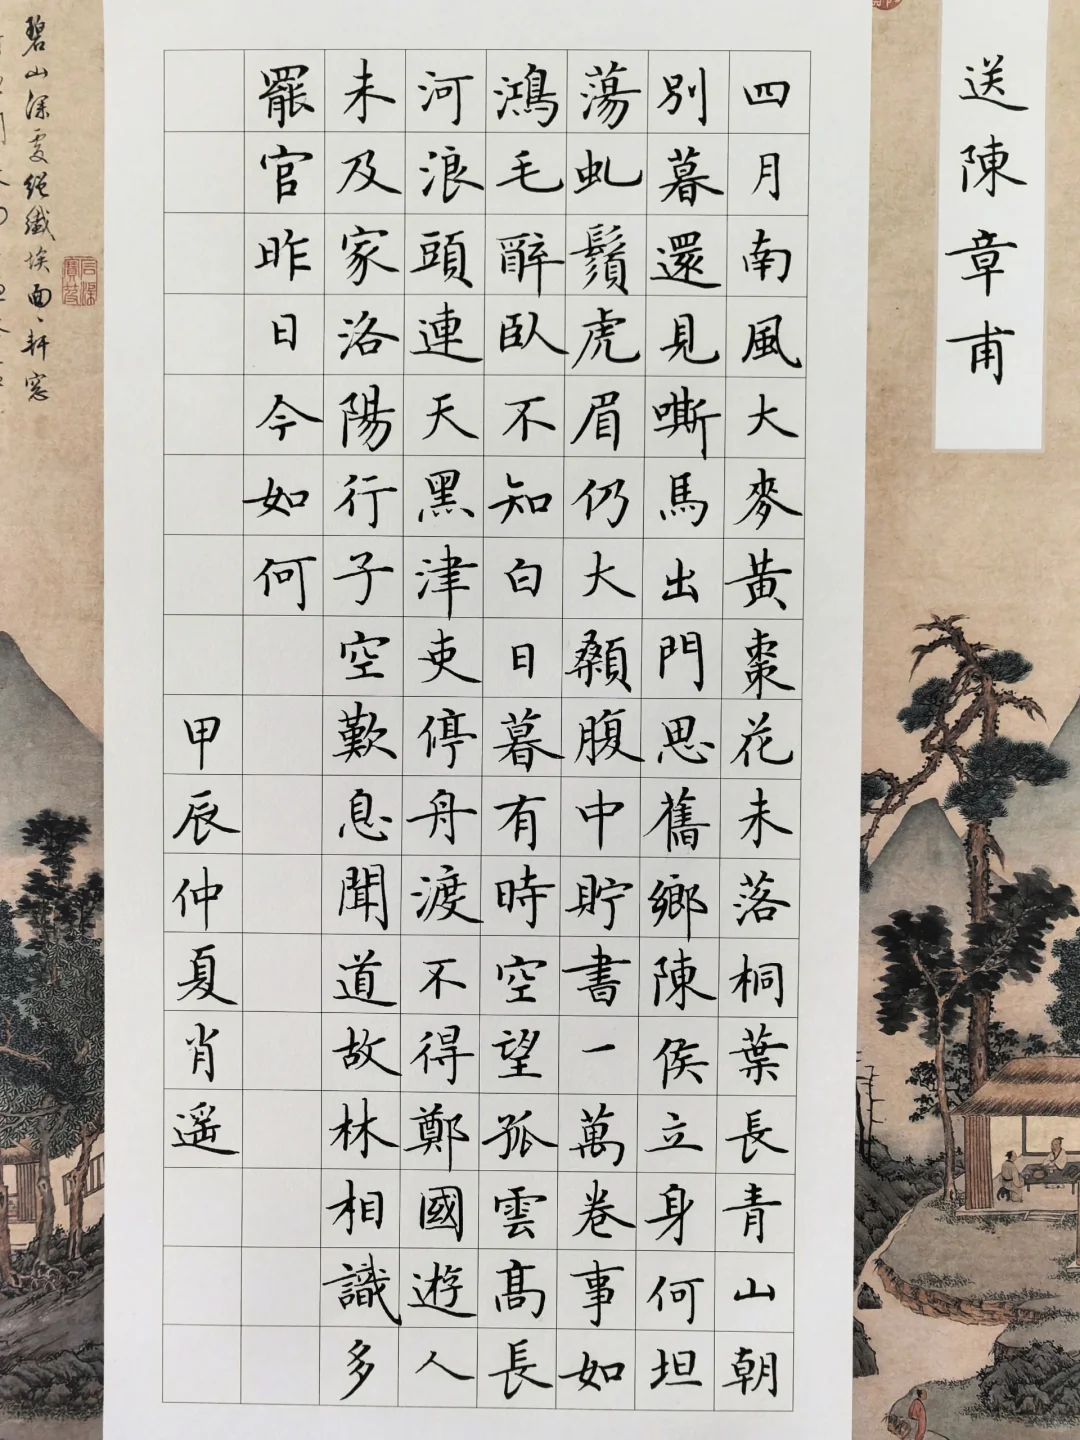 送陳章甫
四月南風大麥黃棗花未落桐葉長青山朝
別暮還見嘶馬出門思舊鄉陳侯立身何坦
蕩虬鬚虎眉仍大顙腹中貯書一萬卷事如
鴻毛辭臥不知白日暮有時空望孤雲高長
河浪頭連天黑津吏停舟渡不得鄭國遊人
未及家洛陽行子空歎息聞道故林相識多
罷官昨日今如何
甲辰仲夏肖遥
碧山深處絕纖埃面〻軒窓